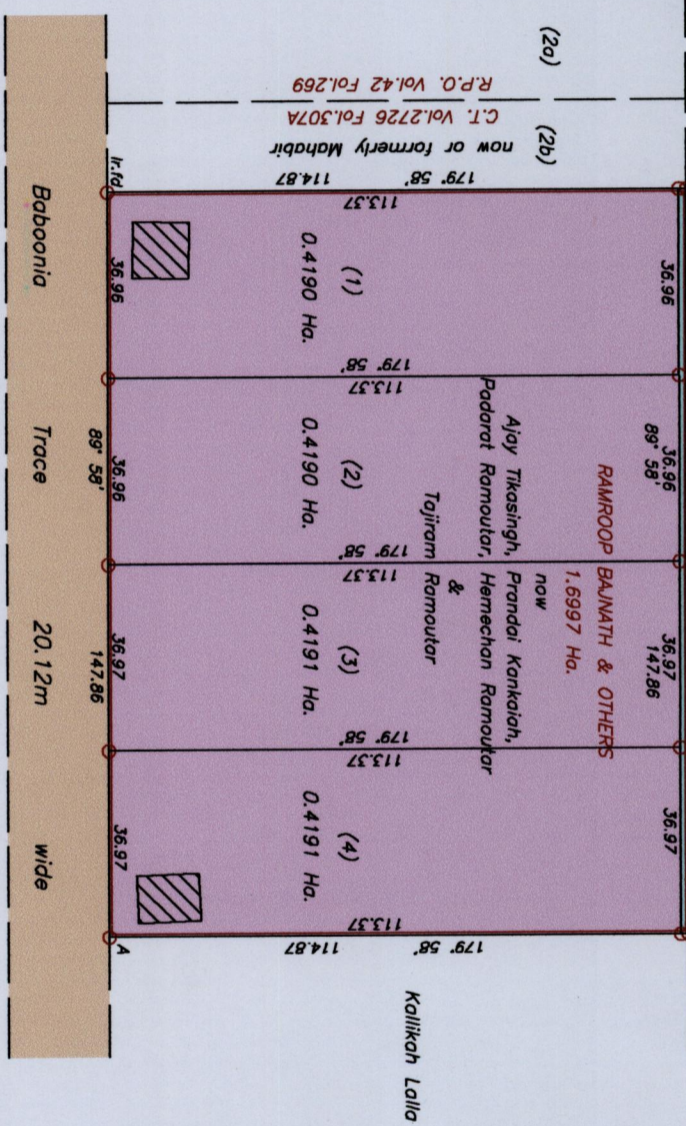 (2a)
R.P.O. Vol.42 Fol.269
C.T. Vol.2726 Fol.307A
(2b)
now or formerly Mahabir
179° 58'
114.87
113.37
Ir.fd
36.96
36.96
(1)
0.4190 Ha.
179° 58'
113.37
36.96
89° 58'
36.96
89° 58'
(2)
0.4190 Ha.
179° 58'
113.37
RAMROOP BAJNATH & OTHERS
1.6997 Ha.
now
Ajay Tikasingh, Prandai Kankaiah,
Padarat Ramoutar, Hemechan Ramoutar
&
Tajiram Ramoutar
36.97
147.86
36.97
147.86
(3)
0.4191 Ha.
179° 58'
113.37
36.97
36.97
(4)
0.4191 Ha.
113.37
114.87
179° 58'
A
Kallikah Lalla
Baboonia Trace 20.12m wide